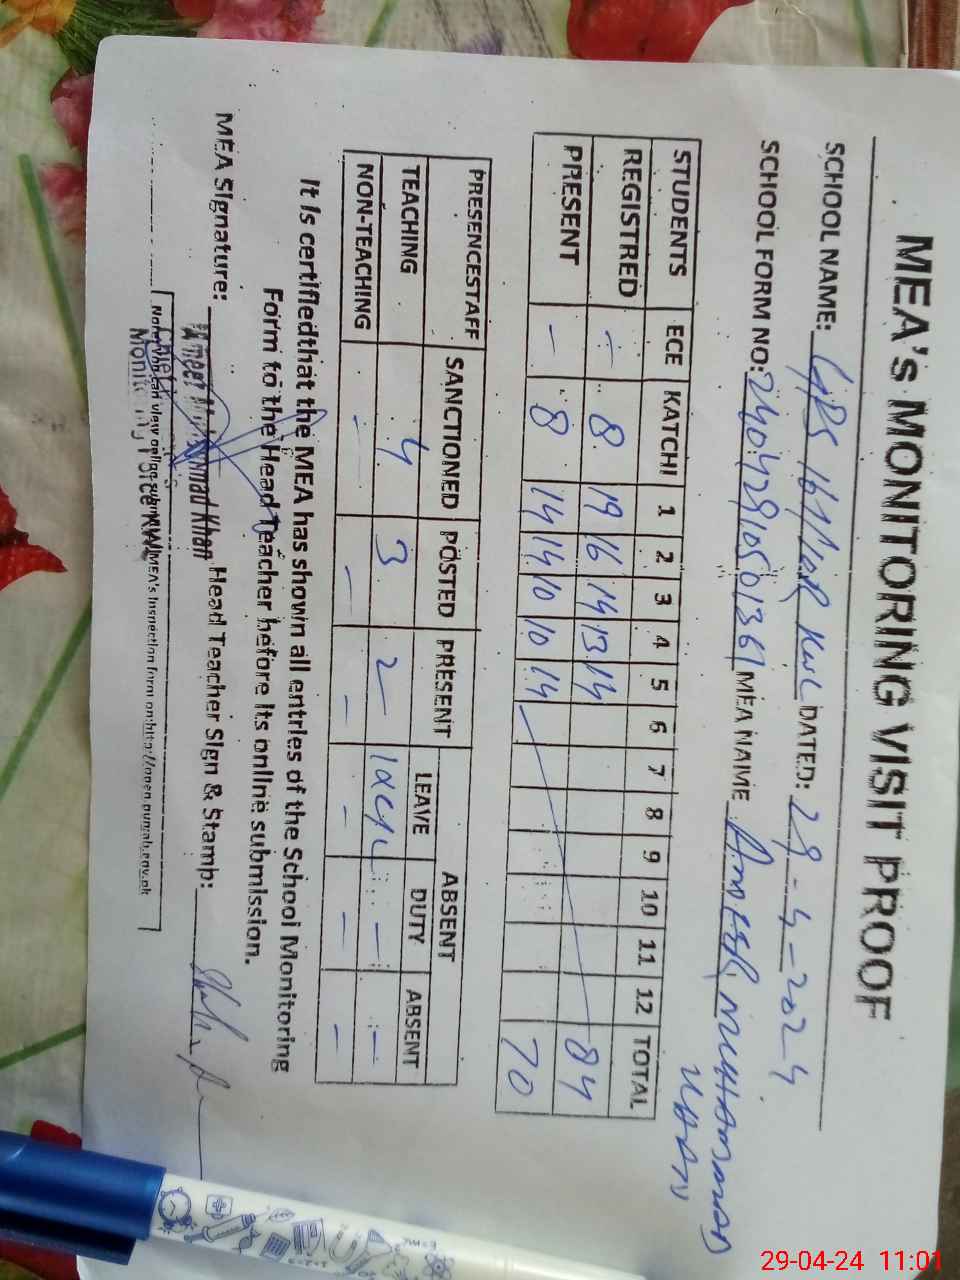 MEA's MONITORING VISIT PROOF
SCHOOL NAME: GPS 161/10R KWL DATED: 29-4-2024
SCHOOL FORM NO: MEA NAME AMEER MUHAMMAD KHAN
STUDENTS ECE KATCHI 1 2 3 4 5 6 7 8 9 10 11 12 TOTAL
REGISTRED - 8 19 16 14 13 14 84
PRESENT - 8 14 14 10 10 14 70
PRESENCESTAFF SANCTIONED POSTED PRESENT ABSENT
LEAVE DUTY ABSENT
TEACHING 4 3 2 - -
NON-TEACHING - - - - - -
It is certifiedthat the MEA has shown all entries of the School Monitoring
Form to the Head Teacher before its online submission.
MEA Signature: Ameer Muhammad Khan Head Teacher Sign & Stamp:
Monitoring Force KWL
Note: You can view online MEA's Inspection form on: http://open.punjab.gov.pk
29-04-24 11:01